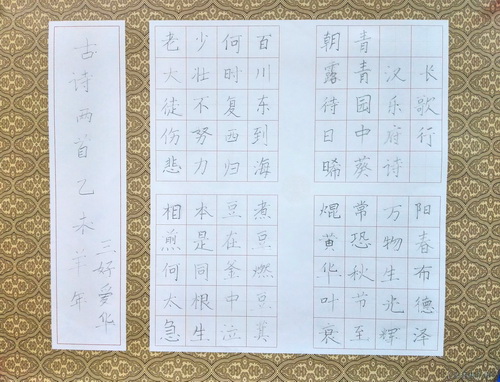 长歌行
汉乐府诗
青青园中葵
朝露待日晞
阳春布德泽
万物生光辉
常恐秋节至
焜黄华叶衰
百川东到海
何时复西归
少壮不努力
老大徒伤悲
煮豆燃豆萁
豆在釜中泣
本是同根生
相煎何太急
古诗两首乙未羊年
三好爱华